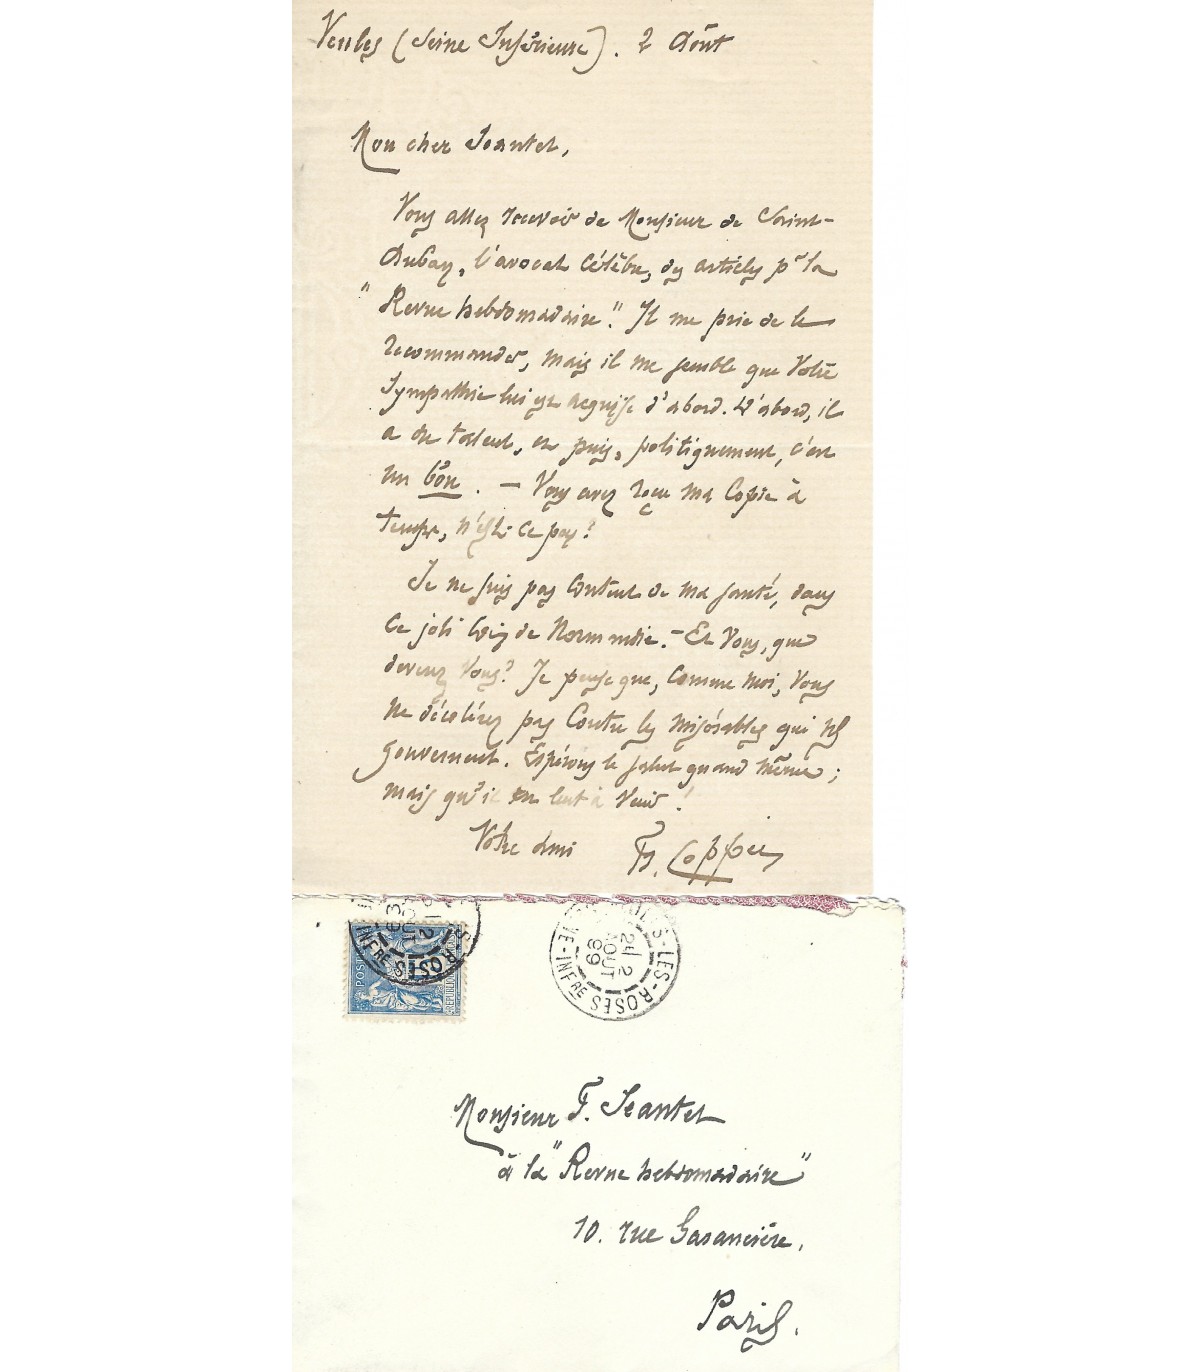 Veules (Seine Inférieure). 2 Août
Mon cher Jeantet,
Vous allez recevoir de Monsieur de Saint-
Auban, l'avocat célèbre, des articles pr la
"Revue hebdomadaire". Il me prie de le
recommander, mais il me semble que votre
sympathie lui est acquise d'abord. D'abord, il
a du talent, et puis, politiquement, c'est
un bon. — Vous avez reçu ma copie à
temps, n'est-ce pas?
Je ne suis pas content de ma santé, dans
ce joli coin de Normandie. — Et vous, que
devenez vous? Je pense que, comme moi, vous
ne décolérez pas contre les misérables qui ns
gouvernent. Espérons le salut quand même;
mais qu'il est lent à venir!
Votre ami Fs. Coppée
POSTES
RÉPUBLIQUE
ROSES
INFRE
2
AOUT
LES-ROSES
INFRE
2E
2
AOUT
99
Monsieur F. Jeantet
à la "Revue hebdomadaire"
10. rue Garancière.
Paris.